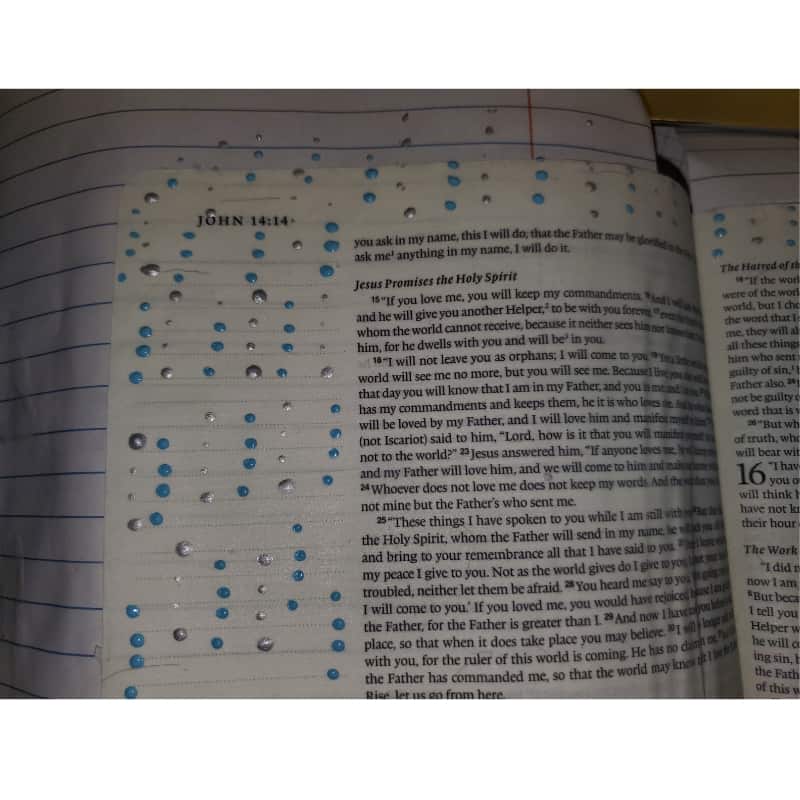 JOHN 14:14
you ask in my name, this I will do, that the Father may be glorified in the
ask me¹ anything in my name, I will do it.
Jesus Promises the Holy Spirit
15 "If you love me, you will keep my commandments. 16 And I will
and he will give you another Helper,² to be with you forever, 17 even
whom the world cannot receive, because it neither sees him nor
him, for he dwells with you and will be³ in you.
18 "I will not leave you as orphans; I will come to you. 19 Yet a little
world will see me no more, but you will see me. Because I live, you
that day you will know that I am in my Father, and you in me, and I
has my commandments and keeps them, he it is who loves me. And he
will be loved by my Father, and I will love him and manifest myself to
(not Iscariot) said to him, "Lord, how is it that you will manifest yourself
not to the world?" 23 Jesus answered him, "If anyone loves me, he will
and my Father will love him, and we will come to him and make
24 Whoever does not love me does not keep my words. And the
not mine but the Father's who sent me.
25 "These things I have spoken to you while I am still with
the Holy Spirit, whom the Father will send in my name, he will
and bring to your remembrance all that I have said to you.
my peace I give to you. Not as the world gives do I give to you.
troubled, neither let them be afraid. 28 You heard me say to you,
I will come to you.' If you loved me, you would have rejoiced,
the Father, for the Father is greater than I. 29 And now I have
place, so that when it does take place you may believe. 30 I will
with you, for the ruler of this world is coming. He has no claim
the Father has commanded me, so that the world may know
Rise, let us go from here.
The Hatred of
18 "If the
were of the
world, but I
the word that I
me, they will
all these things
him who sent
guilty of sin,
Father also.
not be guilty
word that is
26 "But
of truth,
will bear
16 "I
you
will think
have not
their hour
The Work
"I did
now I am
6 But
I tell you
Helper
he will
ing sin,
the
of this